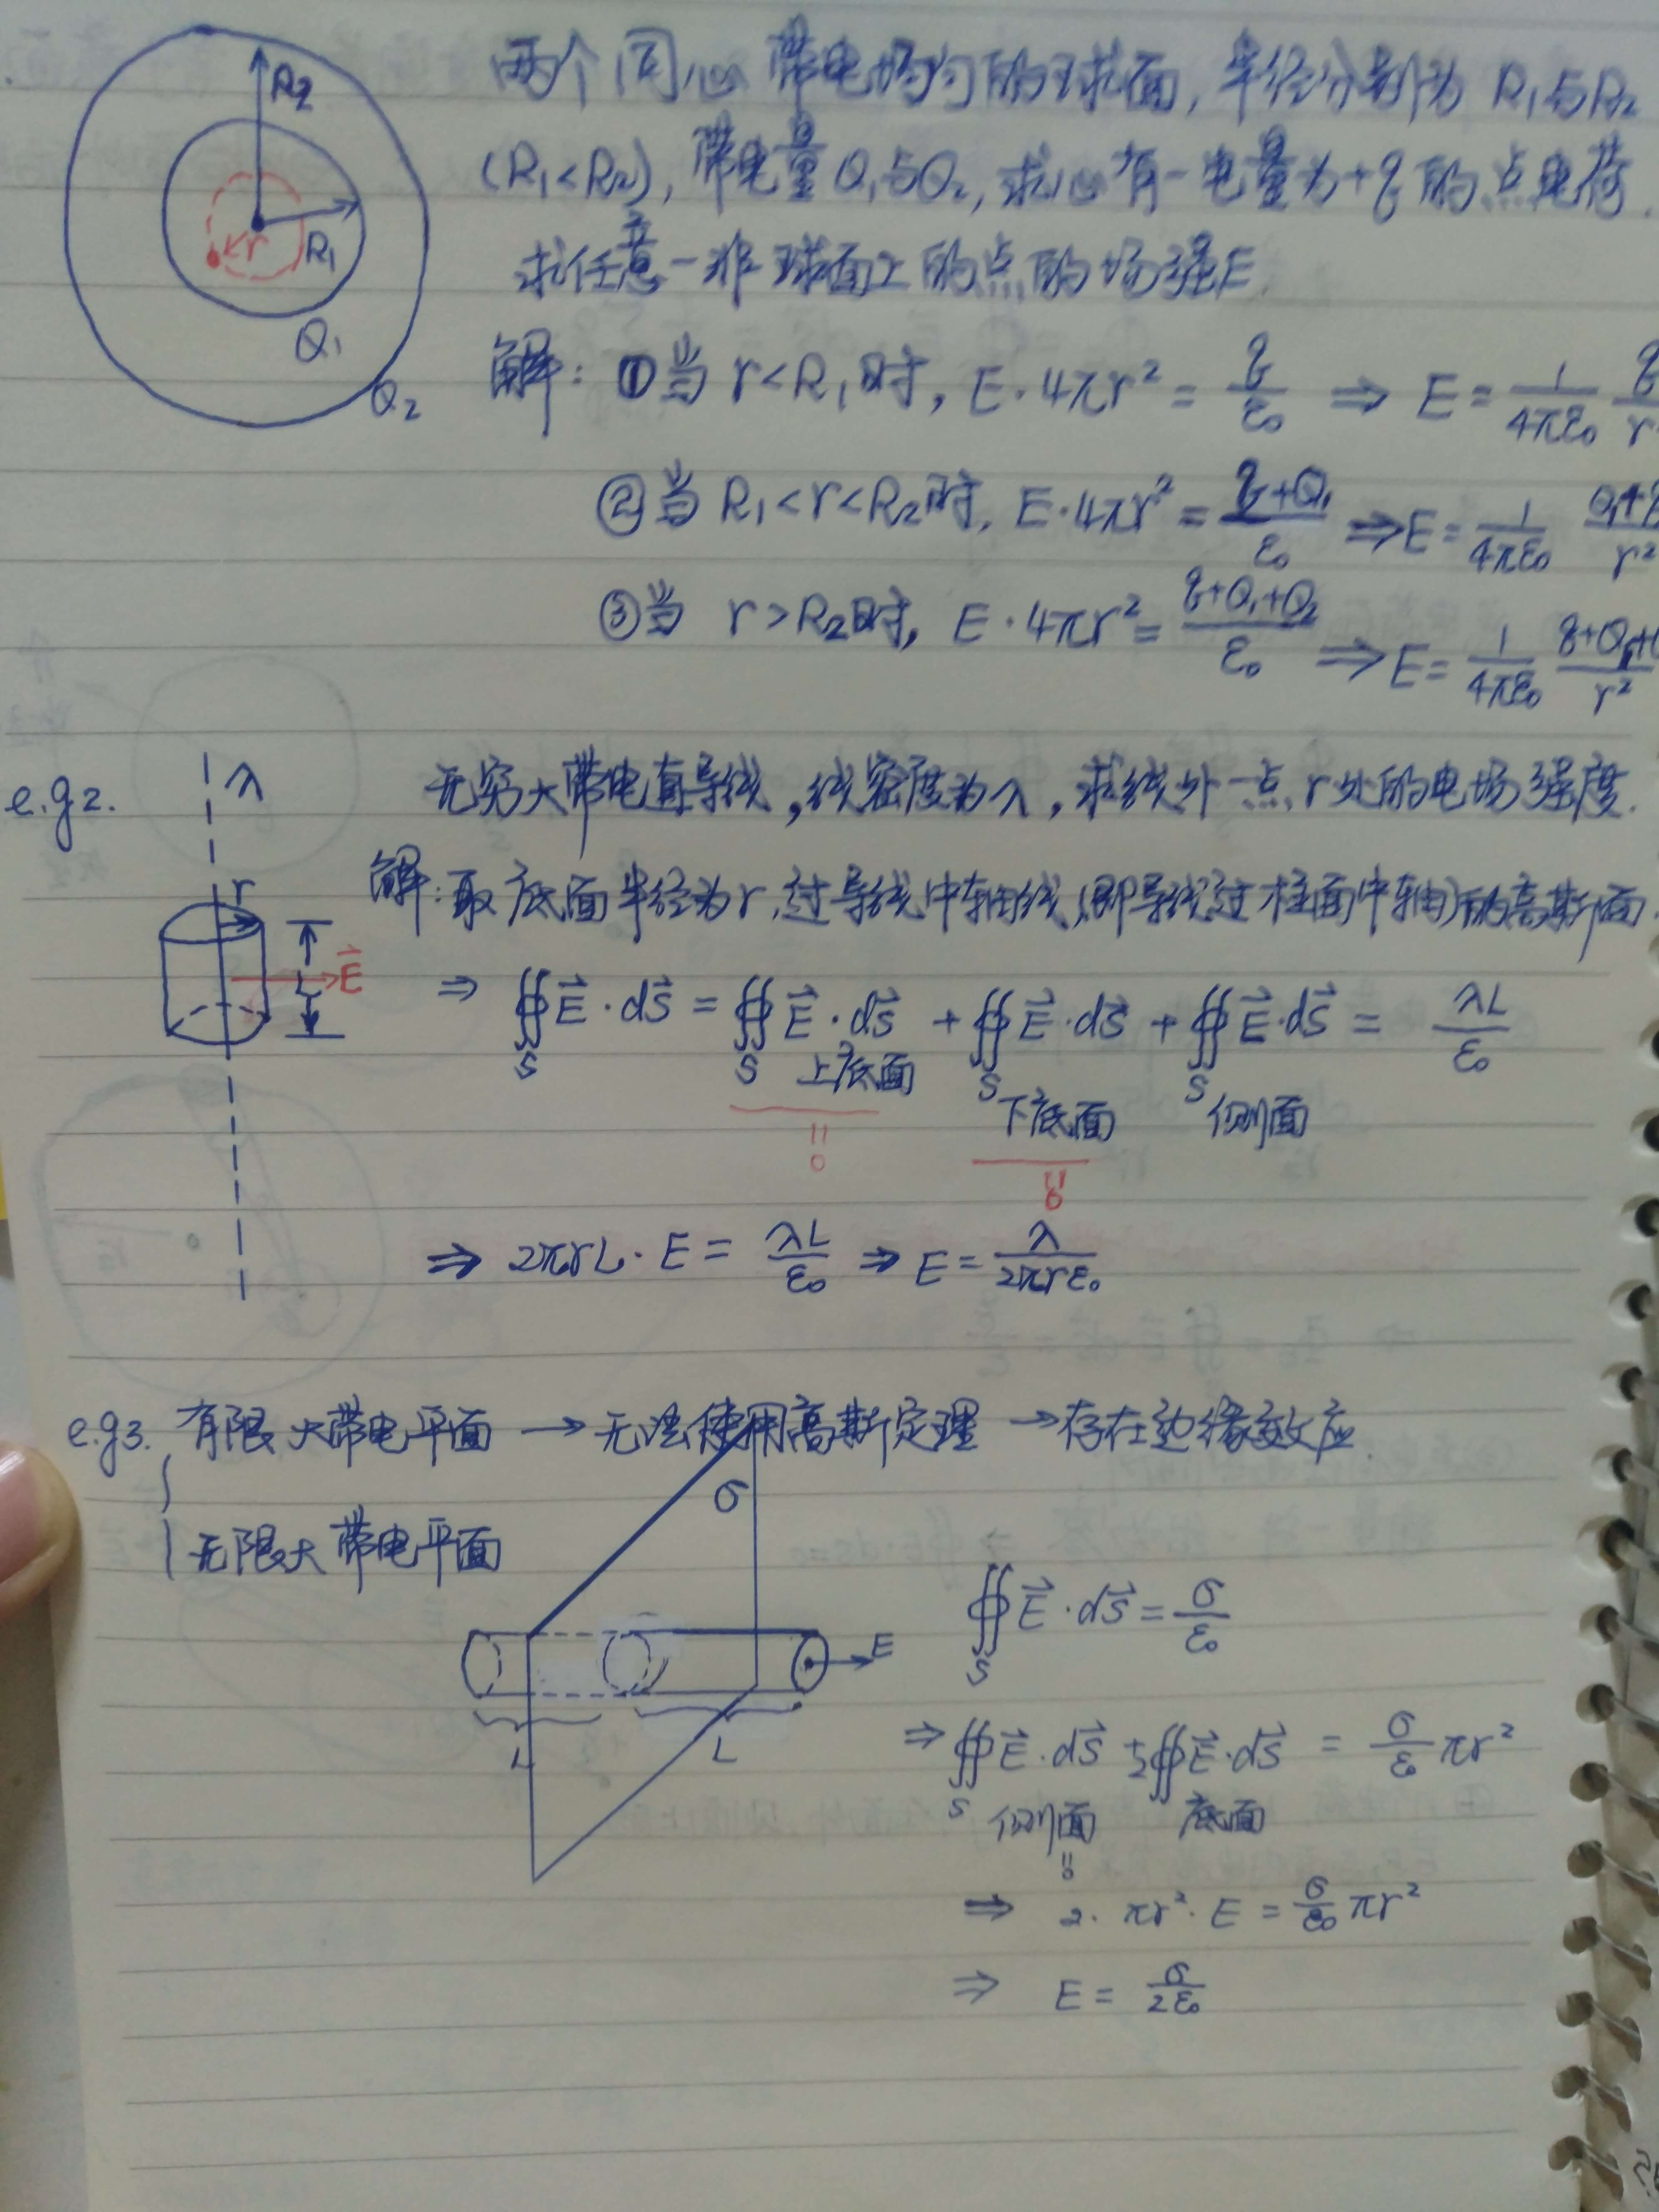 R₂
R₁
r
Q₁
Q₂
两个同心带电均匀的球面,半径分别为R₁与R₂
(R₁<R₂),带电量Q₁与Q₂,求心有一电量为+q的点电荷.
求任意一非球面上的点的场强E.
解: ①当 r<R₁时, E·4πr² = q/ε₀ ⇒ E = 1/4πε₀ q/r
②当 R₁<r<R₂时, E·4πr² = q+Q₁/ε₀ ⇒ E = 1/4πε₀ Q₁+q/r²
③当 r>R₂时, E·4πr² = q+Q₁+Q₂/ε₀ ⇒ E = 1/4πε₀ q+Q₁+/r²
e.g2. λ 无穷大带电直导线,线密度为λ,求线外一点r处的电场强度.
r
L
E⃗
解:取底面半径为r,过导线中轴线(即导线过柱面中轴)的高斯面.
⇒ ∯S E⃗·dS⃗ = ∯S E⃗·dS⃗ + ∯S E⃗·dS⃗ + ∯S E⃗·dS⃗ = λL/ε₀
上底面 下底面 侧面
=0 =0
⇒ 2πrL·E = λL/ε₀ ⇒ E = λ/2πrε₀
e.g3. 有限大带电平面 → 无法使用高斯定理 → 存在边缘效应.
无限大带电平面
σ
E
L L
∯S E⃗·dS⃗ = σ/ε₀
⇒ ∯S E⃗·dS⃗ + 2∯E⃗·dS⃗ = σ/ε₀ πr²
侧面 底面
=0
⇒ 2·πr²·E = σ/ε₀ πr²
⇒ E = σ/2ε₀